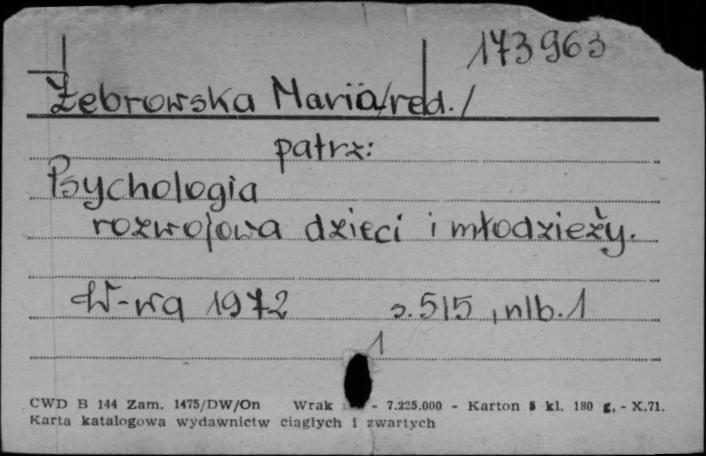 173963
Żebrowska Maria/red./
patrz:
Psychologia
rozwojowa dzieci i młodzieży.
W-wa 1972 s. 515, nlb. 1
1
CWD B 144 Zam. 1475/DW/On Wrak - 7.225.000 - Karton kl. 180 g, - X.71.
Karta katalogowa wydawnictw ciągłych i zwartych